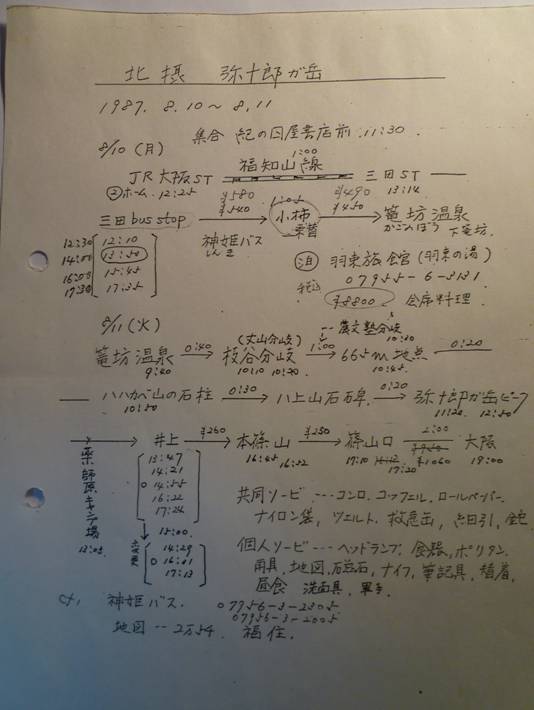 北摂 弥十郎ガ岳
1987. 8.10～8.11
8/10(月) 集合 紀の国屋書店前 11:30
1:00
福知山線
JR大阪ST 三田ST
②ホーム 12:25 13:14
¥580 1:05 ¥490
¥540 ¥450
三田bus stop → 小柿 → 篭坊温泉
乗替 かごんぼう 下篭坊
神姫バス
しんき
12:30 12:10
14:00 13:50
16:00 15:45
17:30 17:35
泊 羽束旅館(羽束の湯)
07955-6-3131
税込 ¥8800 会席料理
8/11(火)
(丈山分岐) --農文塾分岐
10:30
篭坊温泉 0:40→ 板谷分岐 1:00→ 665m地点 0:20
9:40 10:10 10:20 10:45
ハハカベ山の石柱 0:30→ 八上山石碑 0:20→ 弥十郎ガ岳ピーク
10:50 11:20 12:50
→ 井上 ¥260→ 本篠山 ¥250→ 篠山口 2:00 大阪
16:45 16:52 17:10 17:20 ¥1060 19:00
薬師原キャンプ場
13:05
13:47
14:21
○ 14:55
16:22
17:24
15:00
変更
14:29
○ 16:01
17:13
共同ソービ --- コンロ, コッフェル, ロールペーパー,
ナイロン袋, ツェルト, 救急缶,
個人ソービ --- ヘッドランプ, 食器, ポリタン,
用具, 地図, 磁石, ナイフ, 筆記具, 着替,
昼食 洗面具, 軍手
cf, 神姫バス. 07956-3-2305
07956-3-2005
地図 -- 2万5千 福住.